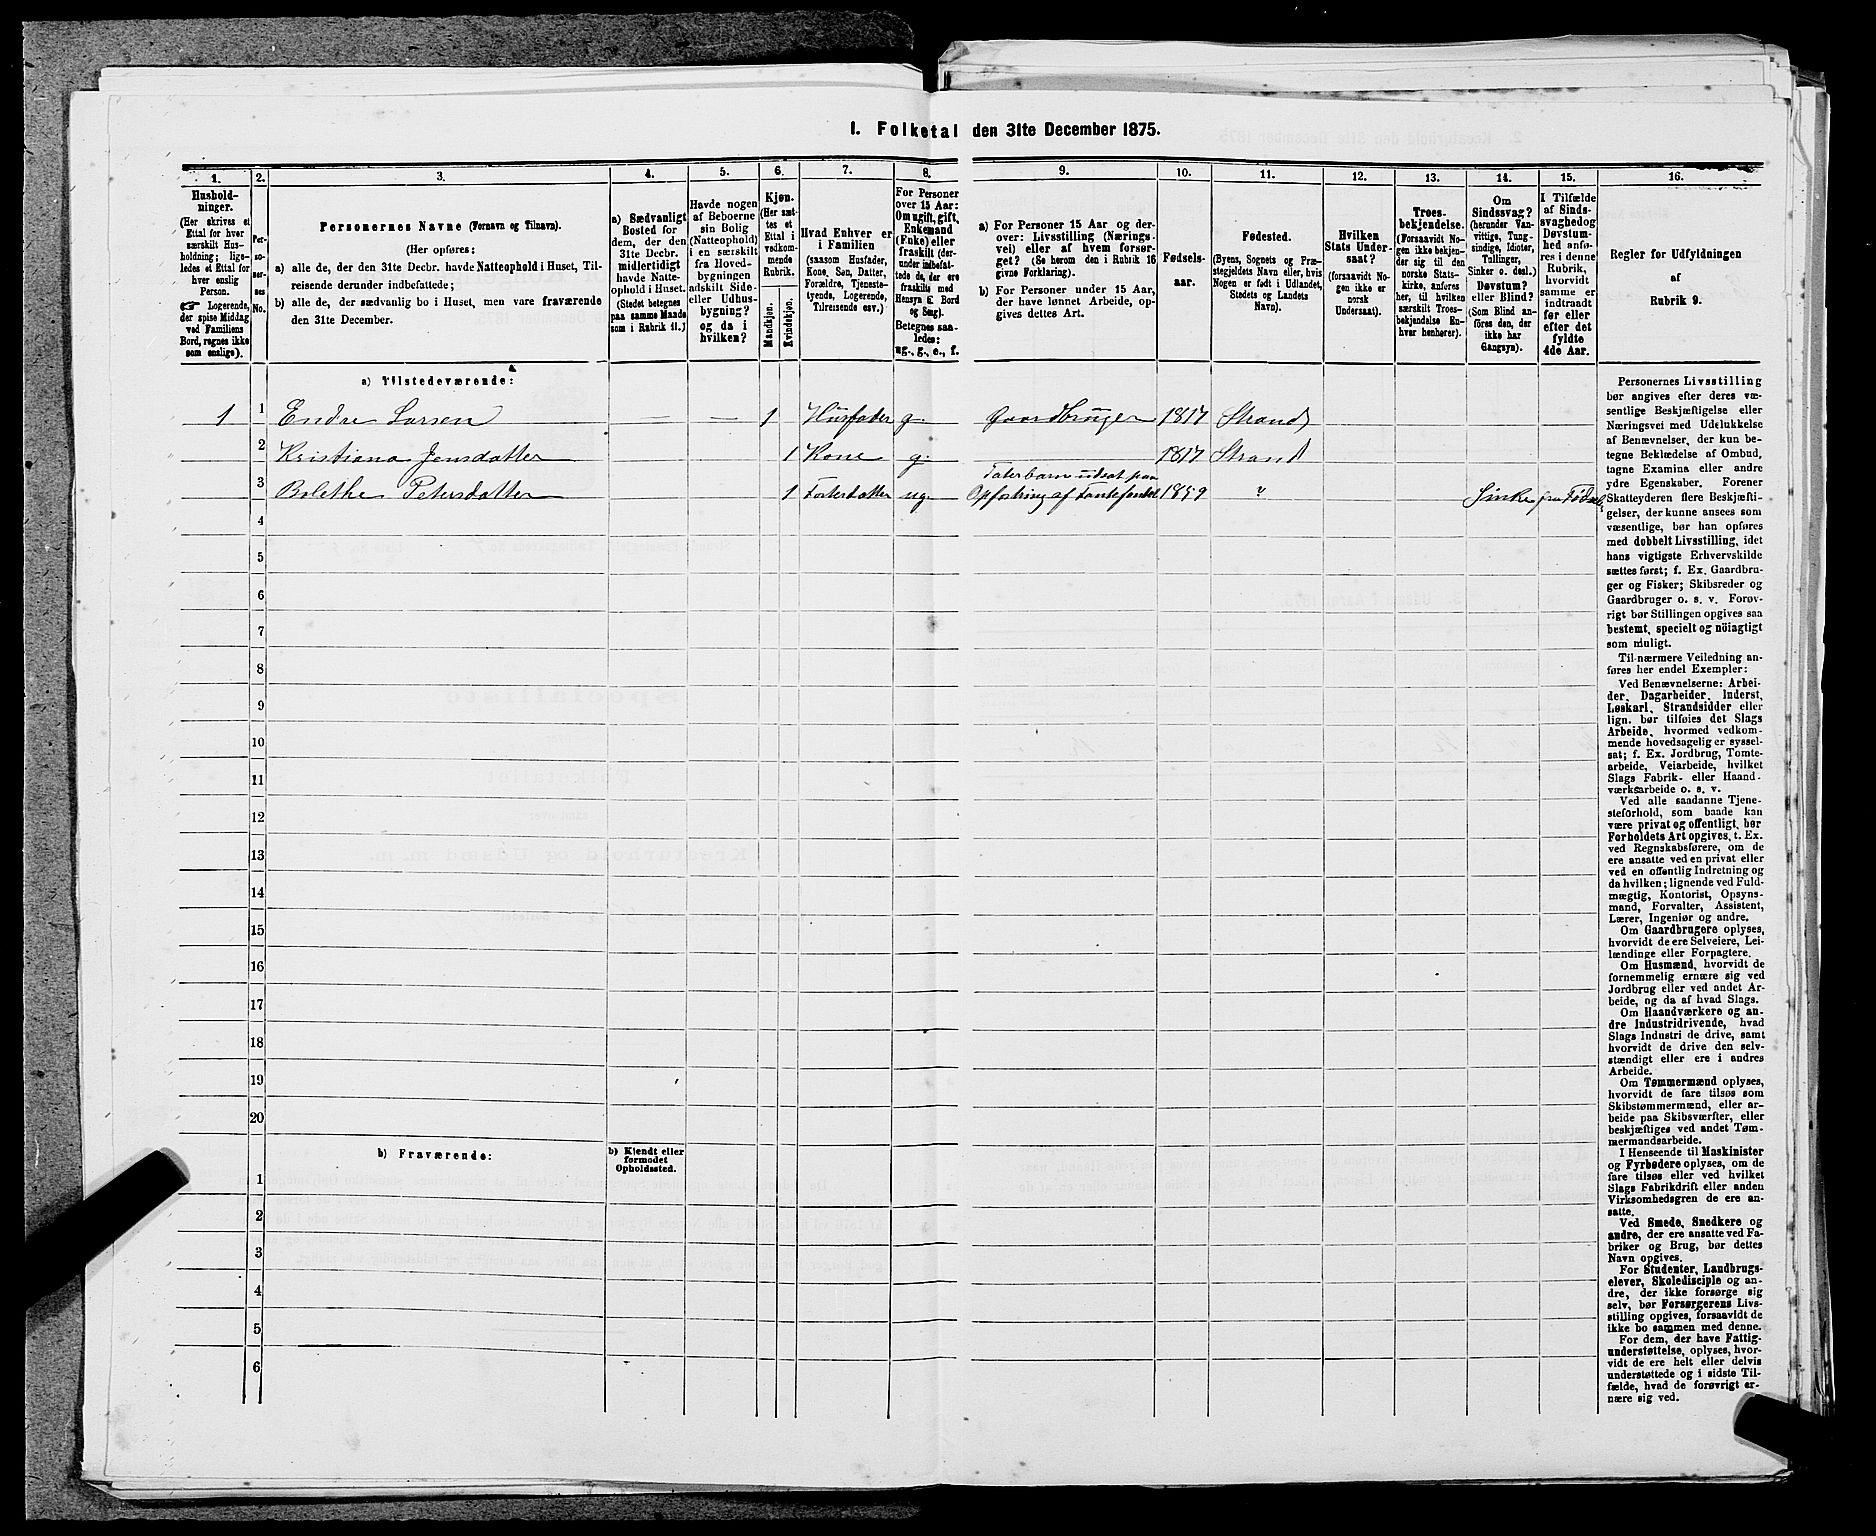 1. Folketal den 31te December 1875.
1.
2.
3.
4.
5.
6.
7.
8.
9.
10.
11.
12.
13.
14.
15.
16.
Hushold-
ninger.
(Her skrives et
Ettal for hver
særskilt Hus-
holdning; lige-
ledes et Ettal for
hver enslig
Person.
☛ Logerende,
der spise Middag
ved Familiens
Bord, regnes ikke
som enslige).
Per-
so-
ner-
nes
No.
Personernes Navne (Fornavn og Tilnavn).
(Her opføres:
a) alle de, der den 31te Decbr. havde Natteophold i Huset, Til-
reisende derunder indbefattede;
b) alle de, der sædvanlig bo i Huset, men vare fraværende
den 31te December.
a) Sædvanligt
Bosted for
dem, der den
31te Decbr.
midlertidigt
havde Natte-
ophold i Huset.
(Stedet betegnes
paa samme Maade
som i Rubrik 11.)
Havde nogen
af Beboerne
sin Bolig
(Natteophold)
i en særskilt
fra Hoved-
bygningen
adskilt Side-
eller Udhus-
bygning?
og da i
hvilken?
Kjøn.
(Her sæt-
tes et
Ettal i
vedkom-
mende
Rubrik.
Mandkjøn.
Kvindekjøn.
Hvad Enhver er
i Familien
(saasom Husfader,
Kone, Søn, Datter,
Forældre, Tjeneste-
tyende, Logerende,
Tilreisende osv.)
For Personer
over 15 Aar:
Om ugift, gift,
Enkemand
(Enke) eller
fraskilt (der-
under indbefat-
tede de, der ere
fraskilte med
Hensyn t. Bord
og Seng).
Betegnes saa-
ledes:
ug., g., e., f.
a) For Personer 15 Aar og der-
over: Livsstilling (Nærings-
vei) eller af hvem forsør-
get? (Se herom den i Rubrik 16
givne Forklaring).
b) For Personer under 15 Aar,
der have lønnet Arbeide, op-
gives dettes Art.
Fødsels-
aar.
Fødested.
(Byens, Sognets og Præ-
stegjeldets Navn eller, hvis
Nogen er født i Udlandet,
Stedets og Landets
Navn).
Hvilken
Stats Under-
saat?
(forsaavidt No-
gen ikke er
norsk
Undersaat).
Troes-
bekjendelse.
(Forsaavidt No-
gen ikke bekjen-
der sig til den
norske Stats-
kirke, anføres
her, til hvilken
særskilt Troes-
bekjendelse En-
hver henhører).
Om
Sindssvag?
(herunder Van-
vittige, Tung-
sindige, Idioter,
Tullinger,
Sinker o. desl.)
Døvstum?
eller Blind?
(Som Blind an-
føres den, der
ikke har
Gangsyn).
I Tilfælde
af Sinds-
svaghed og
Døvstum-
hed anfø-
res i denne
Rubrik,
hvorvidt
samme er
indtraadt
før eller
efter det
fyldte
4de Aar.
Regler for Udfyldningen
af
Rubrik 9.
a) Tilstedeværende:
1 1 Endre Larsen — — 1 Husfader g. Gaardbruger 1817 Strand
2 Kristiana Jensdatter 1 Kone g. 1817 Strand
Taterbarn udsat paa
3 Bolethe Petersdatter 1 Fosterdatter ug. Opfostring af Fantefondet 1859 " Sinke fra Fødsel
4
5
6
7
8
9
10
11
12
13
14
15
16
17
18
19
20
b) Fraværende:
b) Kjendt eller
formodet
Opholdssted.
1
2
3
4
5
6
Personernes Livsstilling
bør angives efter deres væ-
sentlige Beskjæftigelse eller
Næringsvei med Udelukkelse
af Benævnelser, der kun be-
tegne Beklædelse af Ombud,
tagne Examina eller andre
ydre Egenskaber. Forener
Skatteyderen flere Beskjæfti-
gelser, der kunne ansees som
væsentlige, bør han opføres
med dobbelt Livsstilling, idet
hans vigtigste Erhvervskilde
sættes først; f. Ex. Gaardbru-
ger og Fisker; Skibsreder og
Gaardbruger o. s. v. Forøv-
rigt bør Stillingen opgives saa
bestemt, specielt og nöiagtigt
som muligt.
Til nærmere Veiledning an-
føres her endel Exempler:
Ved Benævnelserne: Arbei-
der, Dagarbeider, Inderst,
Løskarl, Strandsidder eller
lign. bør tilføies det Slags
Arbeide, hvormed vedkom-
mende hovedsagelig er syssel-
sat; f. Ex. Jordbrug, Tomte-
arbeide, Veiarbeide, hvilket
Slags Fabrik- eller Haand-
værksarbeide o. s. v.
Ved alle saadanne Tjene-
steforhold, som baade kan
være privat og offentligt, bør
Forholdets Art opgives, t. Ex.
ved Regnskabsførere, om de
ere ansatte ved en privat eller
ved en offentlig Indretning og
da hvilken; lignende ved Fuld-
mægtig, Kontorist, Opsyns-
mand, Forvalter, Assistent,
Lærer, Ingeniør og andre.
Om Gaardbrugere oplyses,
hvorvidt de ere Selveiere, Lei-
lændinge eller Forpagtere.
Om Husmænd, hvorvidt de
fornemmelig ernære sig ved
Jordbrug eller ved andet Ar-
beide, og da af hvad Slags.
Om Haandværkere og an-
dre Industridrivende, hvad
Slags Industri de drive, samt
hvorvidt de drive den selv-
stændigt eller ere i andres
Arbeide.
Om Tømmermænd oplyses,
hvorvidt de fare tilsøs som
Skibstømmermænd, eller ar-
beide paa Skibsværfter, eller
beskjæftiges ved andet Tøm-
mermandsarbeide.
I Henseende til Maskinister
og Fyrbødere oplyses, om de
fare tilsøs eller ved hvilket
Slags Fabrikdrift eller anden
Virksomhedsgren de ere an-
satte.
Ved Smede, Snedkere og
andre, der ere ansatte ved Fa-
briker og Brug, bør dettes
Navn opgives.
For Studenter, Landbrugs-
elever, Skoledisciple og an-
dre, der ikke forsørge sig
selv, bør Forsørgerens Livs-
stilling opgives, forsaavidt de
ikke bo sammen med denne.
For dem, der have Fattig-
understøttelse, oplyses, hvor-
vidt de ere helt eller delvis
understøttede og i sidste Til-
fælde, hvad de forøvrigt er-
nære sig ved.